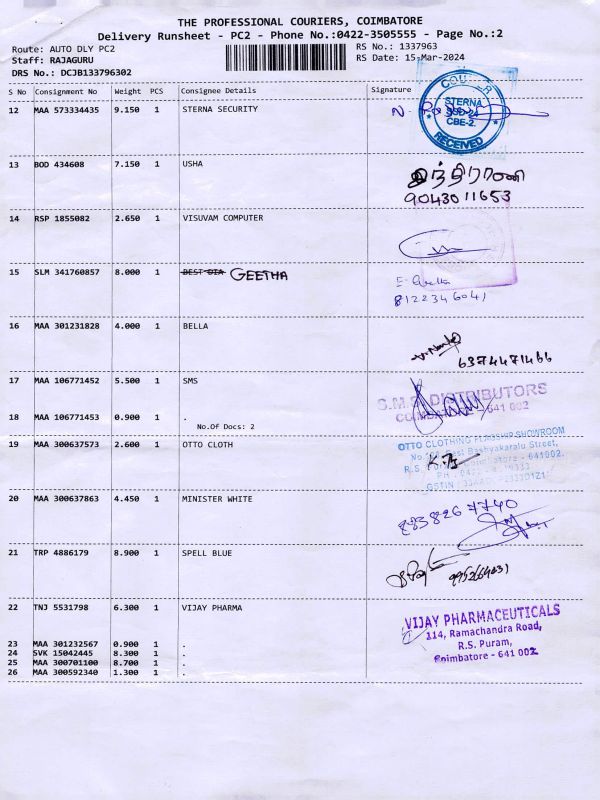 THE PROFESSIONAL COURIERS, COIMBATORE
Delivery Runsheet - PC2 - Phone No.:0422-3505555 - Page No.:2
Route: AUTO DLY PC2
RS No.: 1337963
Staff: RAJAGURU
RS Date: 15-Mar-2024
DRS No.: DCJB133796302
S No Consignment No Weight PCS Consignee Details Signature
12 MAA 573334435 9.150 1 STERNA SECURITY
COURIER
STERNA
CBE-2.
RECEIVED
13 BOD 434608 7.150 1 USHA
இந்திராணி
9043011653
14 RSP 1855082 2.650 1 VISUVAM COMPUTER
15 SLM 341760857 8.000 1 GEETHA
8122346041
16 MAA 301231828 4.000 1 BELLA
6374471466
17 MAA 106771452 5.500 1 SMS
S.M.S DISTRIBUTORS
641 002
18 MAA 106771453 0.900 1 .
No.Of Docs: 2
19 MAA 300637573 2.600 1 OTTO CLOTH
OTTO CLOTHING FLAGSHIP SHOWROOM
Bashyakaralu Street,
R.S. Coimbatore - 641002.
20 MAA 300637863 4.450 1 MINISTER WHITE
8838267740
21 TRP 4886179 8.900 1 SPELL BLUE
22 TNJ 5531798 6.300 1 VIJAY PHARMA
VIJAY PHARMACEUTICALS
114, Ramachandra Road,
R.S. Puram,
Coimbatore - 641 002.
23 MAA 301232567 0.900 1 .
24 SVK 15042445 8.300 1 .
25 MAA 300701100 8.700 1 .
26 MAA 300592340 1.300 1 .